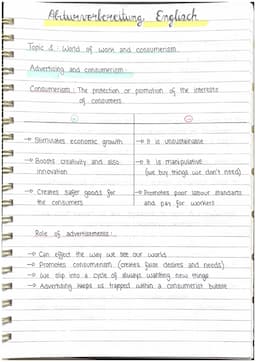 Abiturvorbereitung Englisch
Topic 1: World of work and consumerism
Advertising and consumerism:
Consumerism: The protection or promotion of the interests
of consumers
→ Stimulates economic growth
→ It is unsustainable
→ Boosts creativity and also
innovation
→ It is manipulative
(we buy things we don't need)
→ Creates safer goods for
the consumers
→ Promotes poor labour standarts
and pay for workers
Role of advertisements:
→ Can effect the way we see our world
→ Promotes consumerism (creates false desires and needs)
→ We slip into a cycle of always wanting new things
→ Advertising keeps us trapped within a consumerist bubble